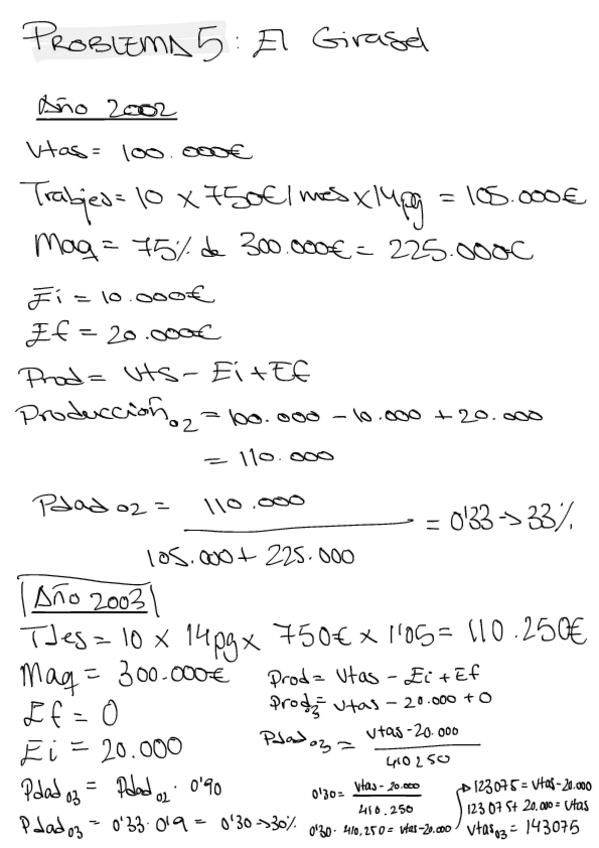 PROBLEMA 5: El Girasol
Año 2002
Vtas = 100.000€
Trabjes = 10 x 750€/mes x 14pg = 105.000€
Maq = 75% de 300.000€ = 225.000€
Ei = 10.000€
Ef = 20.000€
Prod = Vts - Ei + Ef
Producción 02 = 100.000 - 10.000 + 20.000
= 110.000
Pdad 02 = 110.000
105.000 + 225.000
= 0'33 -> 33%
Año 2003
TJes = 10 x 14pg x 750€ x 1'05 = 110.250€
Maq = 300.000€
Ef = 0
Ei = 20.000
Pdad 03 = Pdad 02 . 0'90
Pdad 03 = 0'33 . 0'9 = 0'30 -> 30%
Prod = Vtas - Ei + Ef
Prod 03 = Vtas - 20.000 + 0
Pdad 03 = Vtas - 20.000
410250
0'30 = Vtas - 20.000
410.250
0'30 . 410.250 = Vtas - 20.000
123075 = Vtas - 20.000
123075 + 20.000 = Vtas
Vtas 03 = 143075